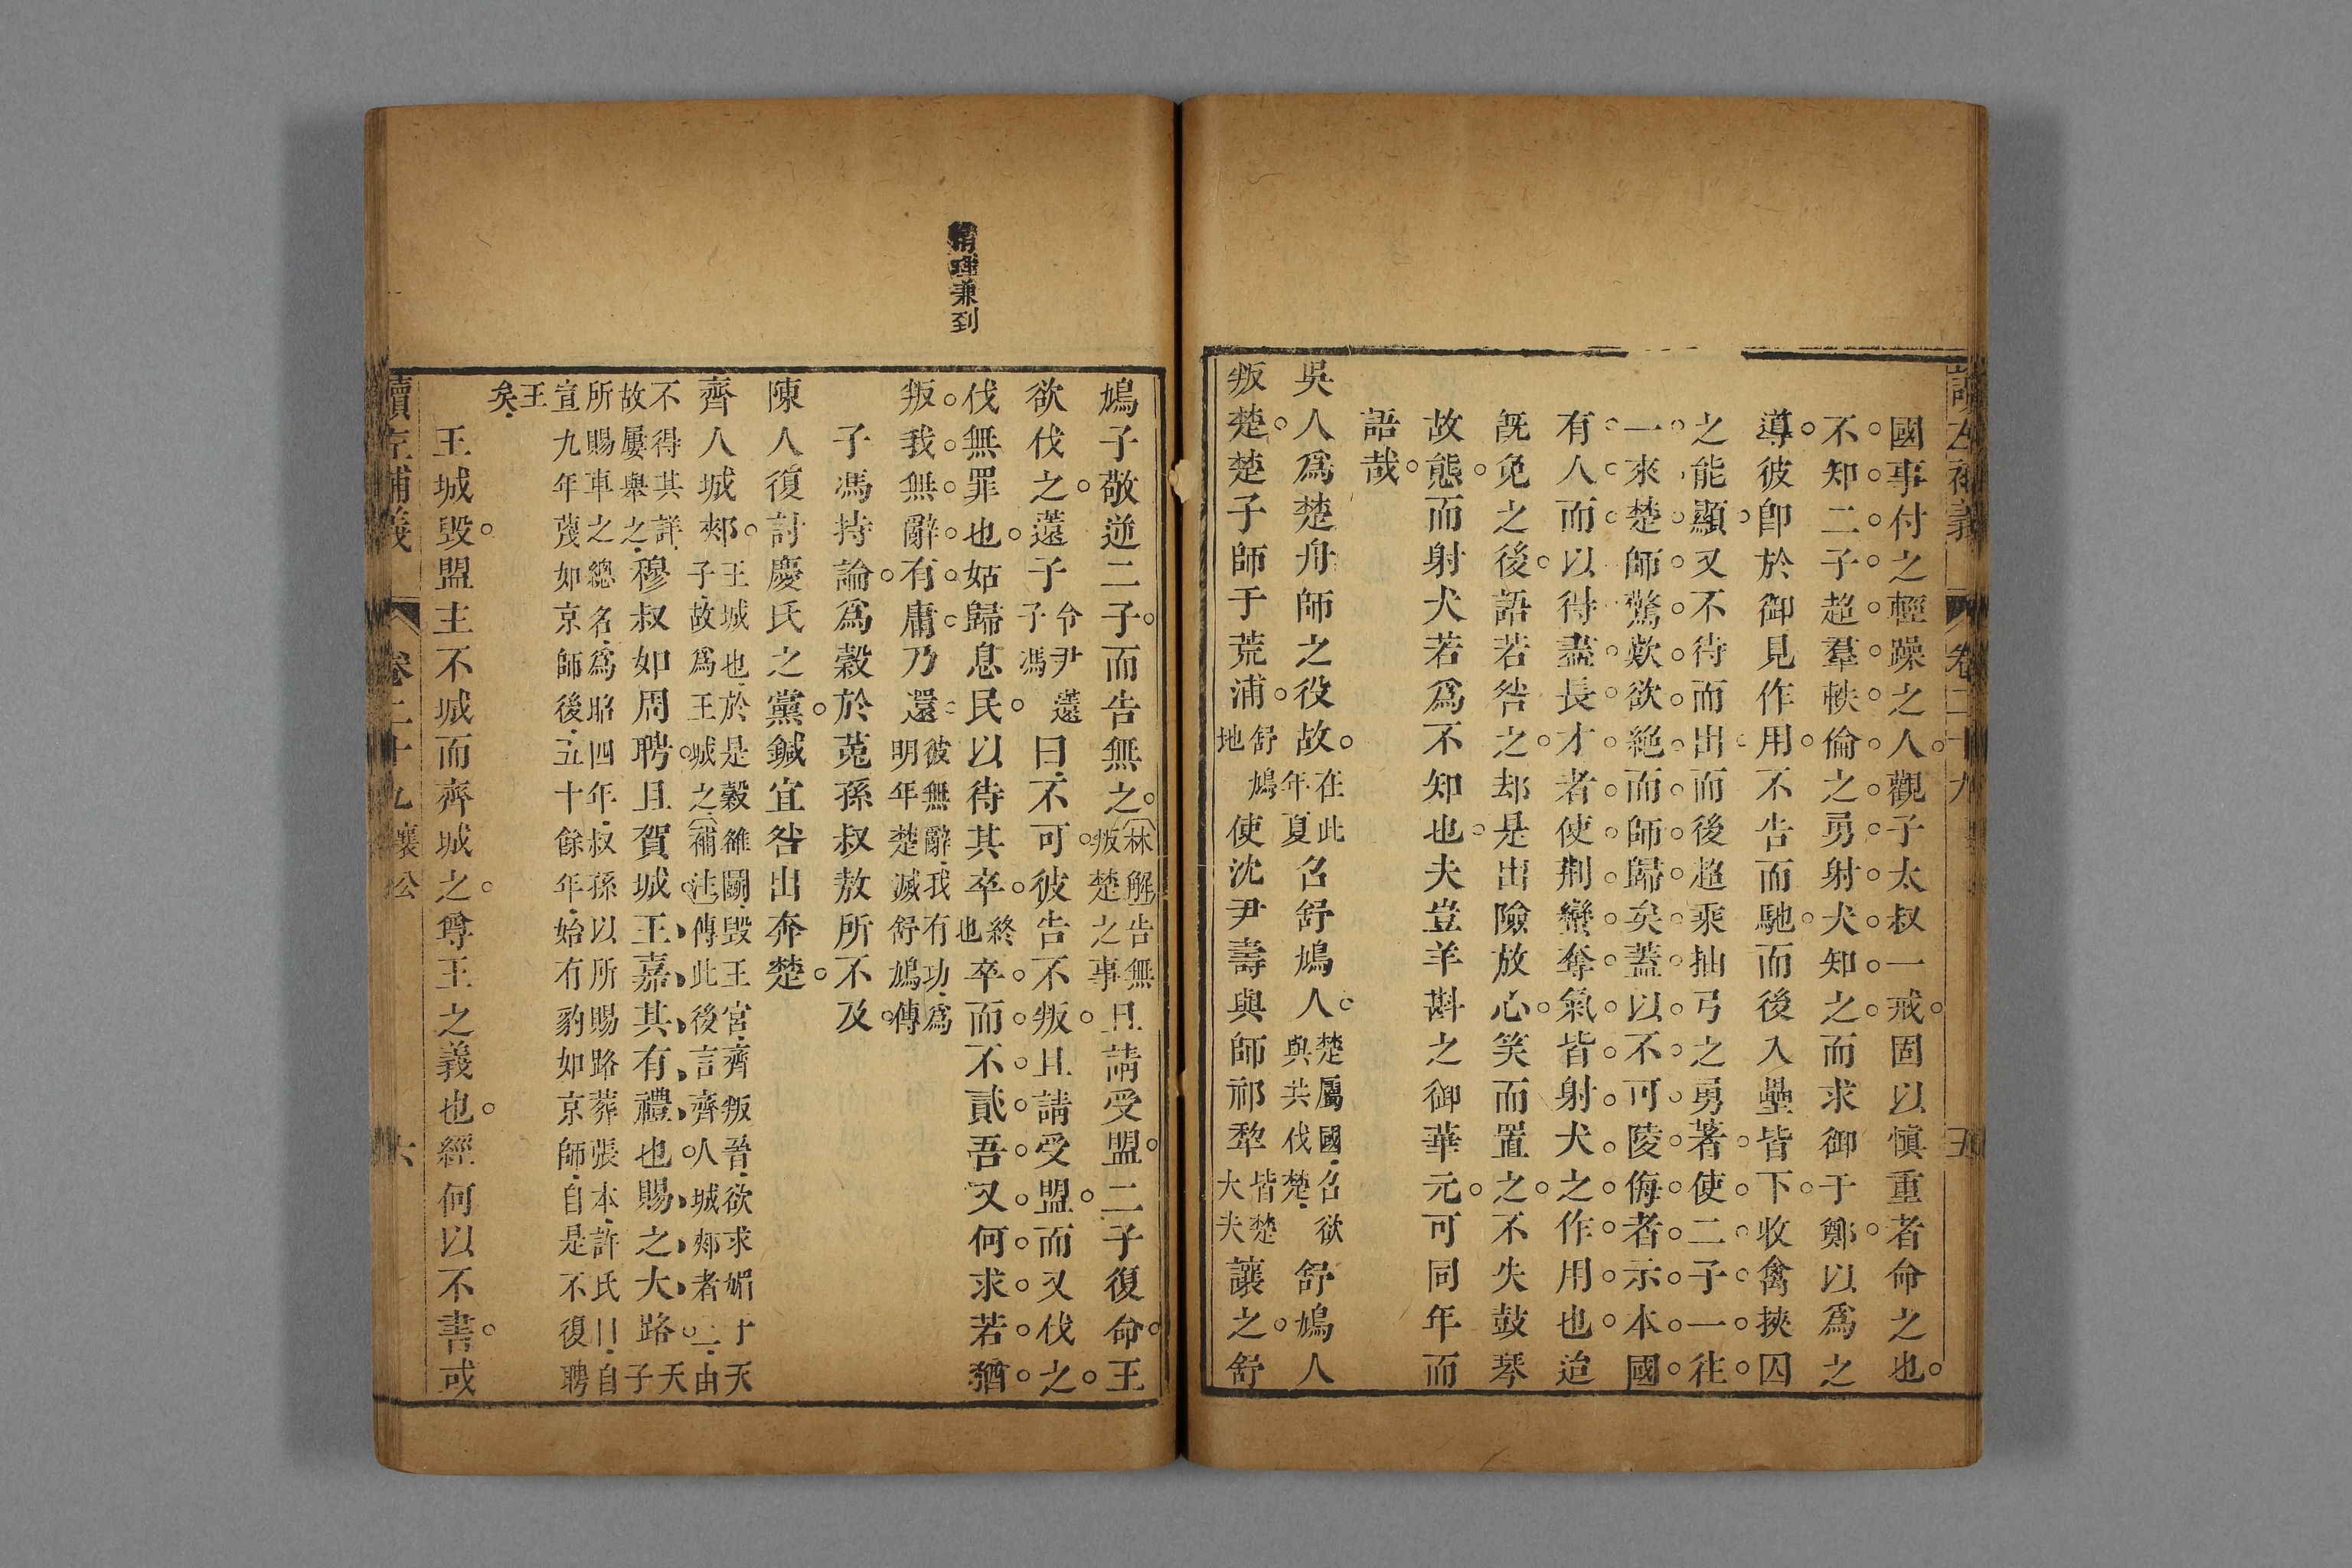 卷二十九
五
國事付之輕躁之人觀子太叔一戒固以愼重者命之也
不知二子超羣軼倫之勇射犬知之而求御于鄭以爲之
導彼卽於御見作用不告而馳而後入壘皆下收禽挾囚
之能顯又不待而出而後超乘抽弓之勇著使二子一往
一來楚師驚歎欲絕而師歸矣蓋以不可陵侮者示本國
有人而以待盡長才者使荆蠻奪氣皆射犬之作用也迨
旣免之後語若咎之却是出險放心笑而置之不失鼓琴
故態而射犬若爲不知也夫豈羊斟之御華元可同年而
語哉
吳人爲楚舟師之役故在此年夏召舒鳩人楚屬國召欲與共伐楚舒鳩人
叛楚楚子師于荒浦舒鳩地使沈尹壽與師祁犂皆楚大夫讓之舒
鳩子敬逆二子而告無之林解告無叛楚之事且請受盟二子復命王
欲伐之薳子令尹薳子馮曰不可彼告不叛且請受盟而又伐之
伐無罪也姑歸息民以待其卒終卒也卒而不貳吾又何求若猶
叛我無辭有庸乃還彼無辭我有功爲明年楚滅舒鳩傳
子馮持論爲穀於菟孫叔敖所不及
陳人復討慶氏之黨鍼宜咎出奔楚
齊人城郟王城也於是穀雒鬭毀王宮齊叛晉欲求媚于天子故爲王城之補注傳此後言齊人城郟者二由
不得其詳故屢舉之穆叔如周聘且賀城王嘉其有禮也賜之大路天子
所賜車之總名爲昭四年叔孫以所賜路葬張本許氏曰自宣九年蔑如京師後五十餘年始有豹如京師自是不復聘
王矣
王城毀盟主不城而齊城之尊王之義也經何以不書或
讀左補義
卷二十九
襄公
六
情理兼到